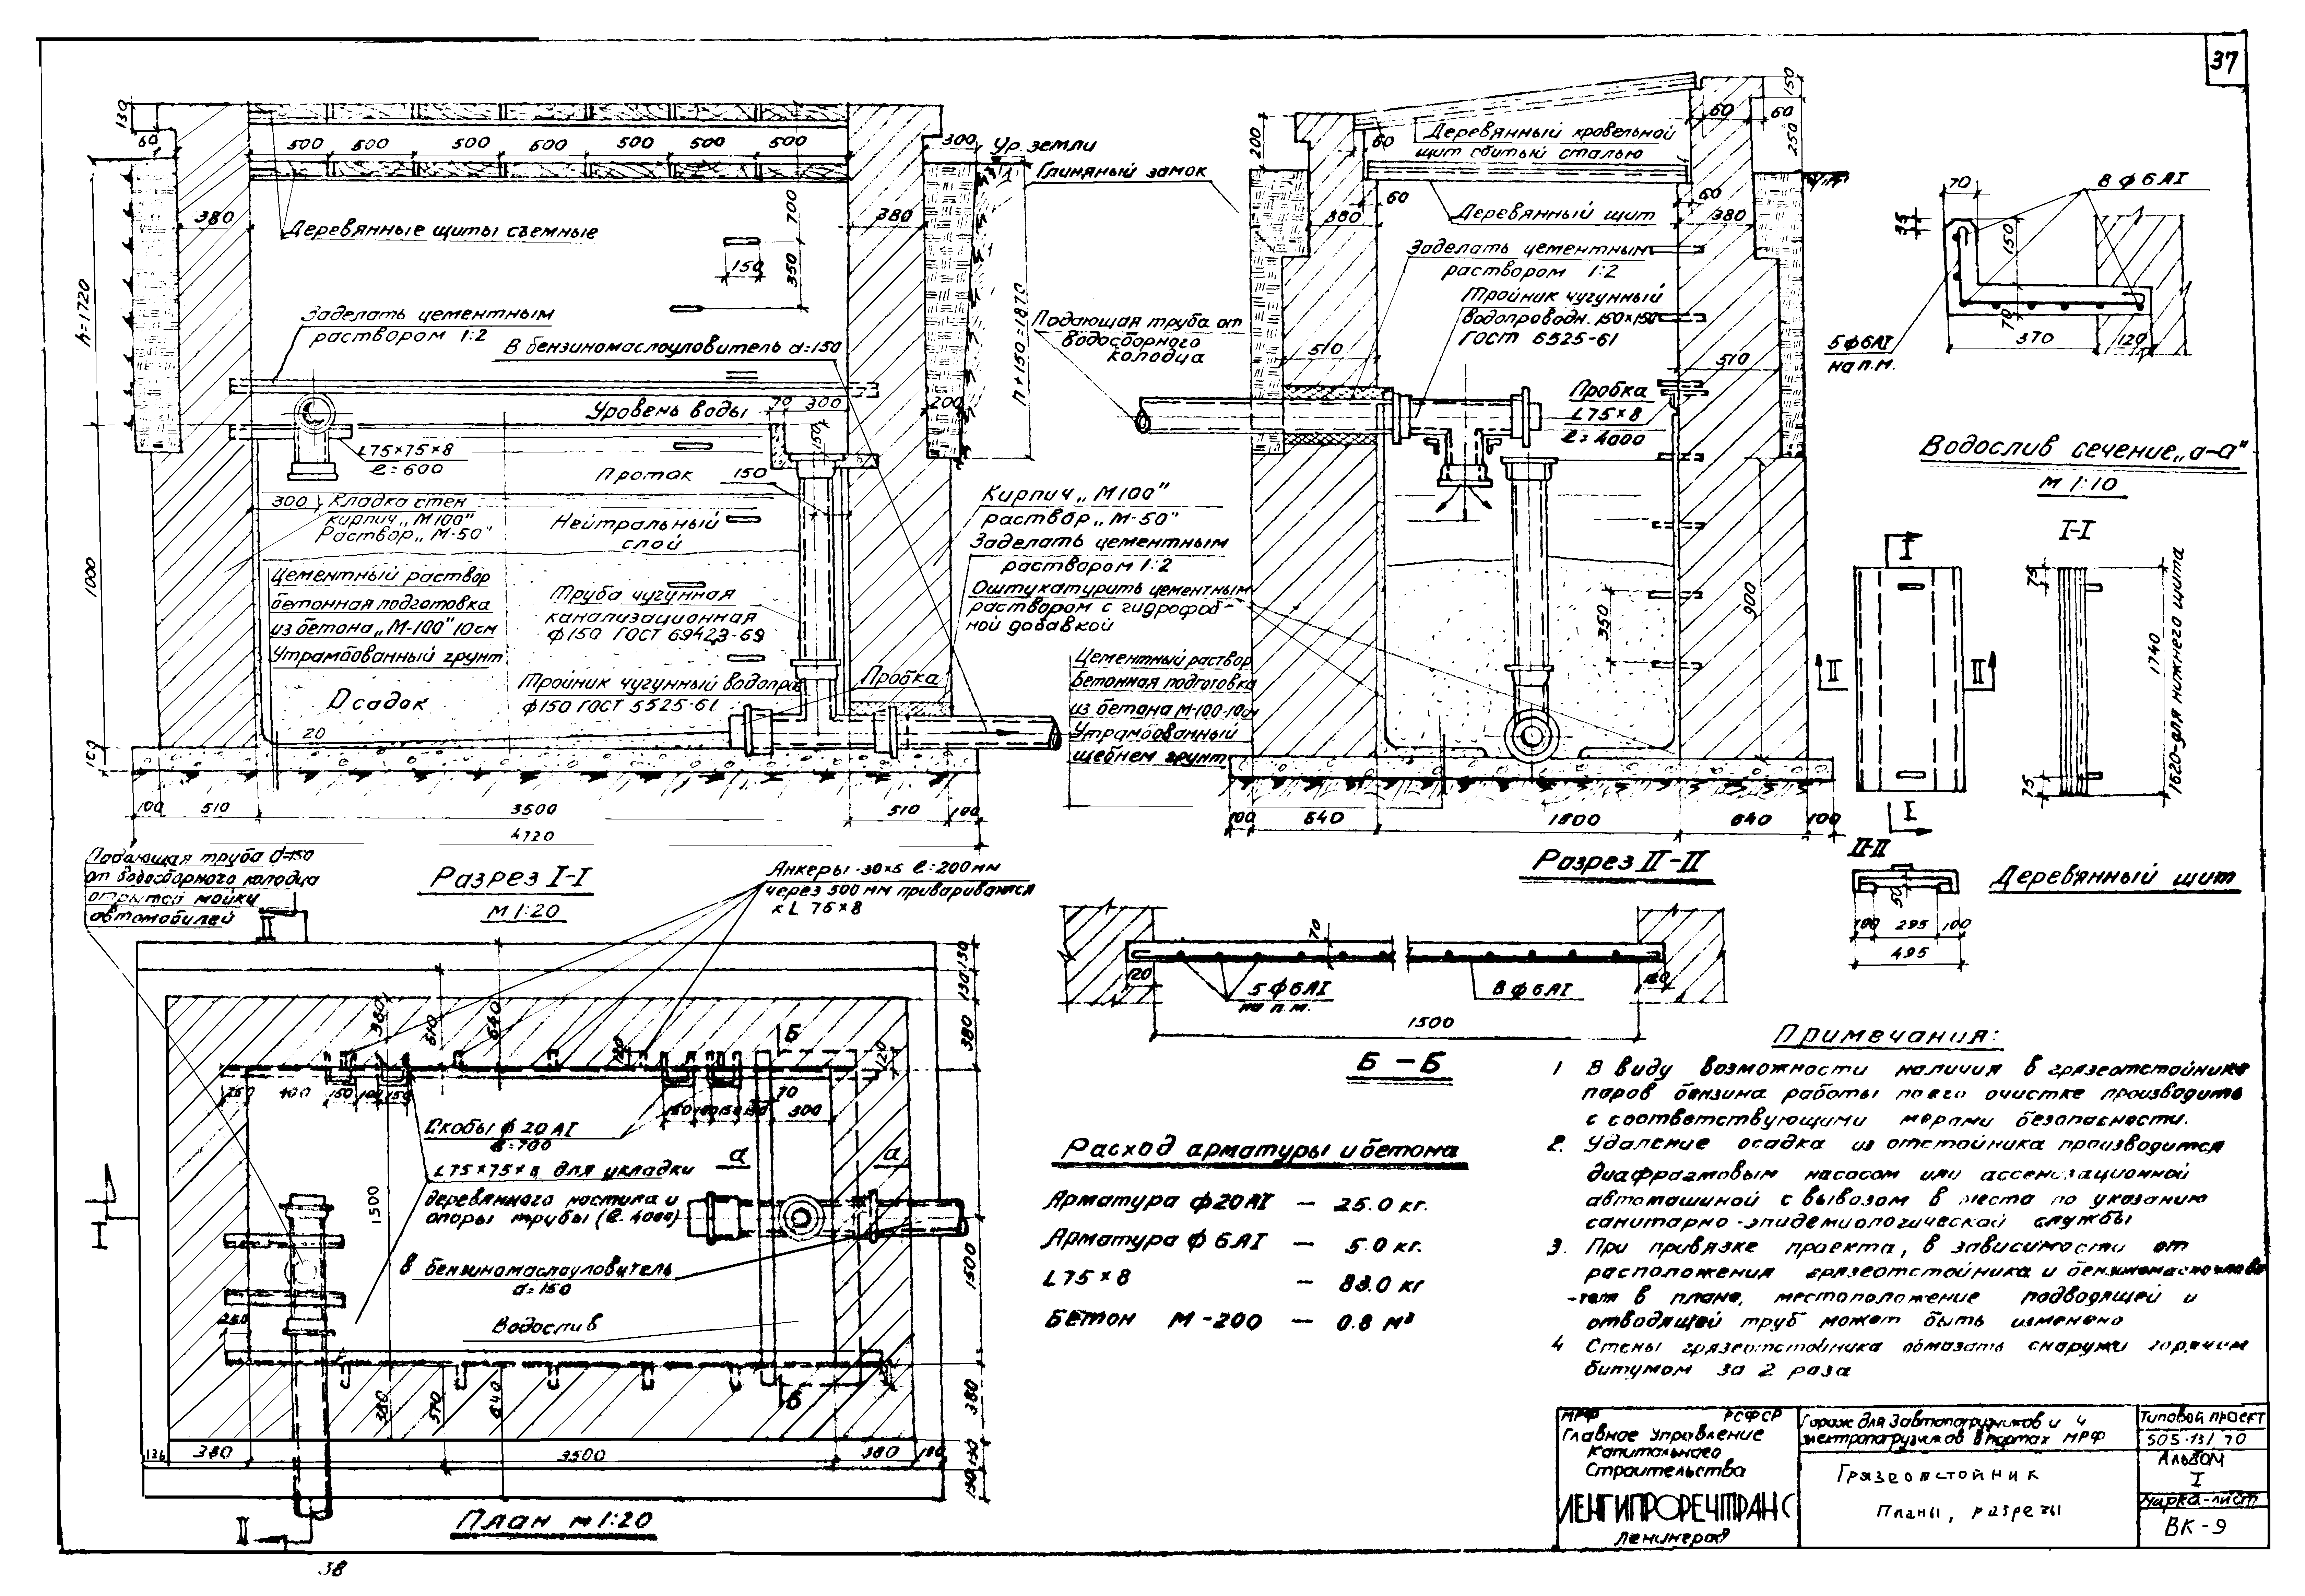 37
130
60
500 500 500 500 500 500 500
300
Ур. земли
Глиняный замок
380
380
Деревянные щиты съемные
700
150
350
h=1720
h+150=1870
Заделать цементным
раствором 1:2
В бензиномаслоуловитель d=150
Уровень воды
70 300
200
150
L75×75×8
ℓ=600
Проток
150
300
Кладка стен
кирпич „М100"
Раствор „М-50"
Нейтральный
слой
1000
Цементный раствор
бетонная подготовка
из бетона „М-100" 10см
Утрамбованный грунт
Труба чугунная
канализационная
ф150 ГОСТ 6942.3-69
Осадок
Тройник чугунный водопров
ф150 ГОСТ 5525-61
Пробка
20
100
100 510 3500 510 100
4720
Разрез I-I
М 1:20
Кирпич „М100"
раствор „М-50"
Заделать цементным
раствором 1:2
Оштукатурить цементным
раствором с гидрофоб-
ной добавкой
Цементный раствор
Бетонная подготовка
из бетона М-100-10см
Утрамбованный
щебнем грунт
200
60
60
60
150
250
Деревянный кровельной
щит сбитый сталью
60
60
380
380
Деревянный щит
Заделать цементным
раствором 1:2
Тройник чугунный
водопроводн. 150×150
ГОСТ 6525-61
Подающая труба от
водосборного
колодца
510
510
Пробка
L75×8
ℓ=4000
350
900
100 640 1500 640 100
Разрез II-II
70
8 ф 6 АI
35
150
70
370
120
5ф6АI
на п.м.
Водослив сечение „а-а"
М 1:10
I
I-I
75
II
II
1740
1620-для нижнего щита
75
I
II-II
50
100 295 100
495
Деревянный щит
Подающая труба d=150
от водосборного колодца
открытой мойки
автомобилей
Анкеры -30×5 ℓ=200мм
через 500 мм привариваются
к L 75×8
II
130
130
380
640
510
Б
120
250 400 150 100 150
70
300
Скобы ф 20 АI
ℓ=700
L75×75×8 для укладки
деревянного настила и
опоры трубы (ℓ=4000)
а
а
1500
I
В бензиномаслоуловитель
d=150
1500
250
Водослив
380
510
640
Б
380
380 3500 380
130
II
План М 1:20
70
120
120
5ф6АI
на п.м.
8ф6АI
1500
Б – Б
Расход арматуры и бетона
Арматура ф20АI – 25.0 кг.
Арматура ф 6АI – 5.0 кг.
L75×8 – 83.0 кг
Бетон М-200 – 0.8 м³
Примечания:
1 В виду возможности наличия в грязеотстойнике
паров бензина работы по его очистке производить
с соответствующими мерами безопасности.
2. Удаление осадка из отстойника производится
диафрагмовым насосом или ассенизационной
автомашиной с вывозом в места по указанию
санитарно-эпидемиологической службы
3. При привязке проекта, в зависимости от
расположения грязеотстойника и бензиномаслоулови
-теля в плане, местоположение подводящей и
отводящей труб может быть изменено
4 Стены грязеотстойника обмазать снаружи горячим
битумом за 2 раза
МРФ РСФСР
Главное Управление
Капитального
Строительства
ЛЕНГИПРОРЕЧТРАНС
Ленинград
Гараж для 3 автопогрузчиков и 4
электропогрузчиков в портах МРФ
Грязеотстойник
Планы, разрезы
Типовой проект
505-13/70
Альбом
I
Марка-лист
ВК-9
38